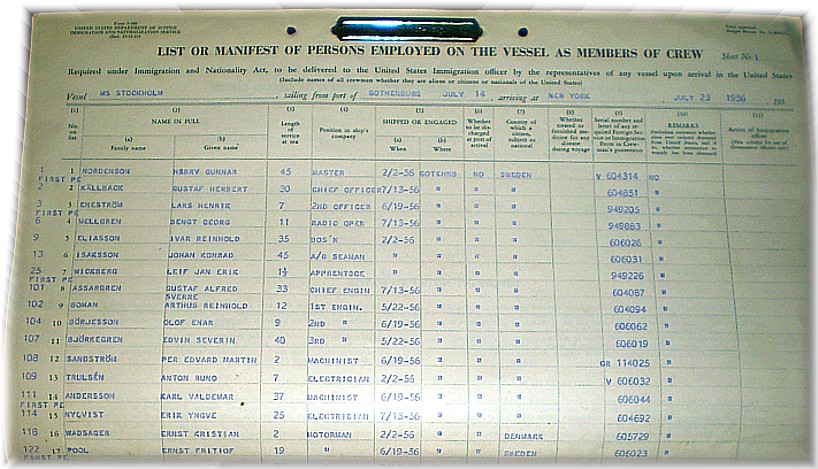 Form I-480
UNITED STATES DEPARTMENT OF JUSTICE
IMMIGRATION AND NATURALIZATION SERVICE
Form approved.
LIST OR MANIFEST OF PERSONS EMPLOYED ON THE VESSEL AS MEMBERS OF CREW
Sheet No. 1
Required under Immigration and Nationality Act, to be delivered to the United States Immigration officer by the representatives of any vessel upon arrival in the United States
(Include names of all crewmen whether they are aliens or citizens or nationals of the United States)
Vessel MS STOCKHOLM, sailing from port of GOTHENBURG JULY 14, arriving at NEW YORK JULY 23 1956, 195
(1) (2) (3) (4) (5) (6) (7) (8) (9) (10) (11)
No. on list
NAME IN FULL
(a) Family name
(b) Given name
Length of service at sea
Position in ship's company
SHIPPED OR ENGAGED
(a) When
(b) Where
Whether to be discharged at port of arrival
Country of which a citizen, subject or national
Whether treated or furnished medicine for any disease during voyage
Serial number and letter of any required Foreign Service or Immigration Form in Crewman's possession
REMARKS
Action of Immigration officer
(This column for use of Government officials only)
1 1 NORDENSON HARRY GUNNAR 45 MASTER 2/2-56 GOTEHNG NO SWEDEN V 604314 NO
FIRST PE
2 2 KÄLLBACK GUSTAF HERBERT 30 CHIEF OFFICER 7/13-56 " " " 604851 "
3 3 ENESTRÖM LARS HENRIK 7 2ND OFFICER 6/19-56 " " " 949205 "
FIRST PE
6 4 MELLGREN BENGT GEORG 11 RADIO OPER 7/13-56 " " " 949883 "
9 5 ELIASSON IVAR REINHOLD 35 BOS'N 2/2-56 " " " 606026 "
13 6 ISAKSSON JOHAN KONRAD 45 A/B SEAMAN " " " " 606031 "
25 7 WICKBERG LEIF JAN ERIK 1½ APPRENTOCE " " " " 949226 "
FIRST PE
101 8 ASSARGREN GUSTAF ALFRED SVERRE 33 CHIEF ENGIN 7/13-56 " " " 604087 "
102 9 BOMAN ARTHUS REINHOLD 12 1ST ENGIN. 5/22-56 " " " 604094 "
104 10 BÖRJESSON OLOF ENAR 9 2ND " 6/19-56 " " " 606062 "
107 11 BJÖRKEGREN EDVIN SEVERIN 40 3RD " 5/22-56 " " " 606019 "
108 12 SANDSTRÖM PER EDVARD MARTIN 2 MACHINIST 6/19-56 " " " CR 114025 "
109 13 TRULSÉN ANTON RUNO 7 ELECTRICIAN 2/2-56 " " " V 606032 "
111 14 ANDERSSON KARL VALDEMAR 37 MACHINIST 6/19-56 " " " 606044 "
FIRST PE
114 15 NYQVIST ERIK YNGVE 25 ELECTRICIAN 7/13-56 " " " 604692 "
118 16 WADSAGER ERNST KRISTIAN 2 MOTORMAN 2/2-56 " " DENMARK 605729 "
122 17 POOL ERNST FRITIOF 19 " 6/19-56 " " SWEDEN 606023 "
FIRST PE